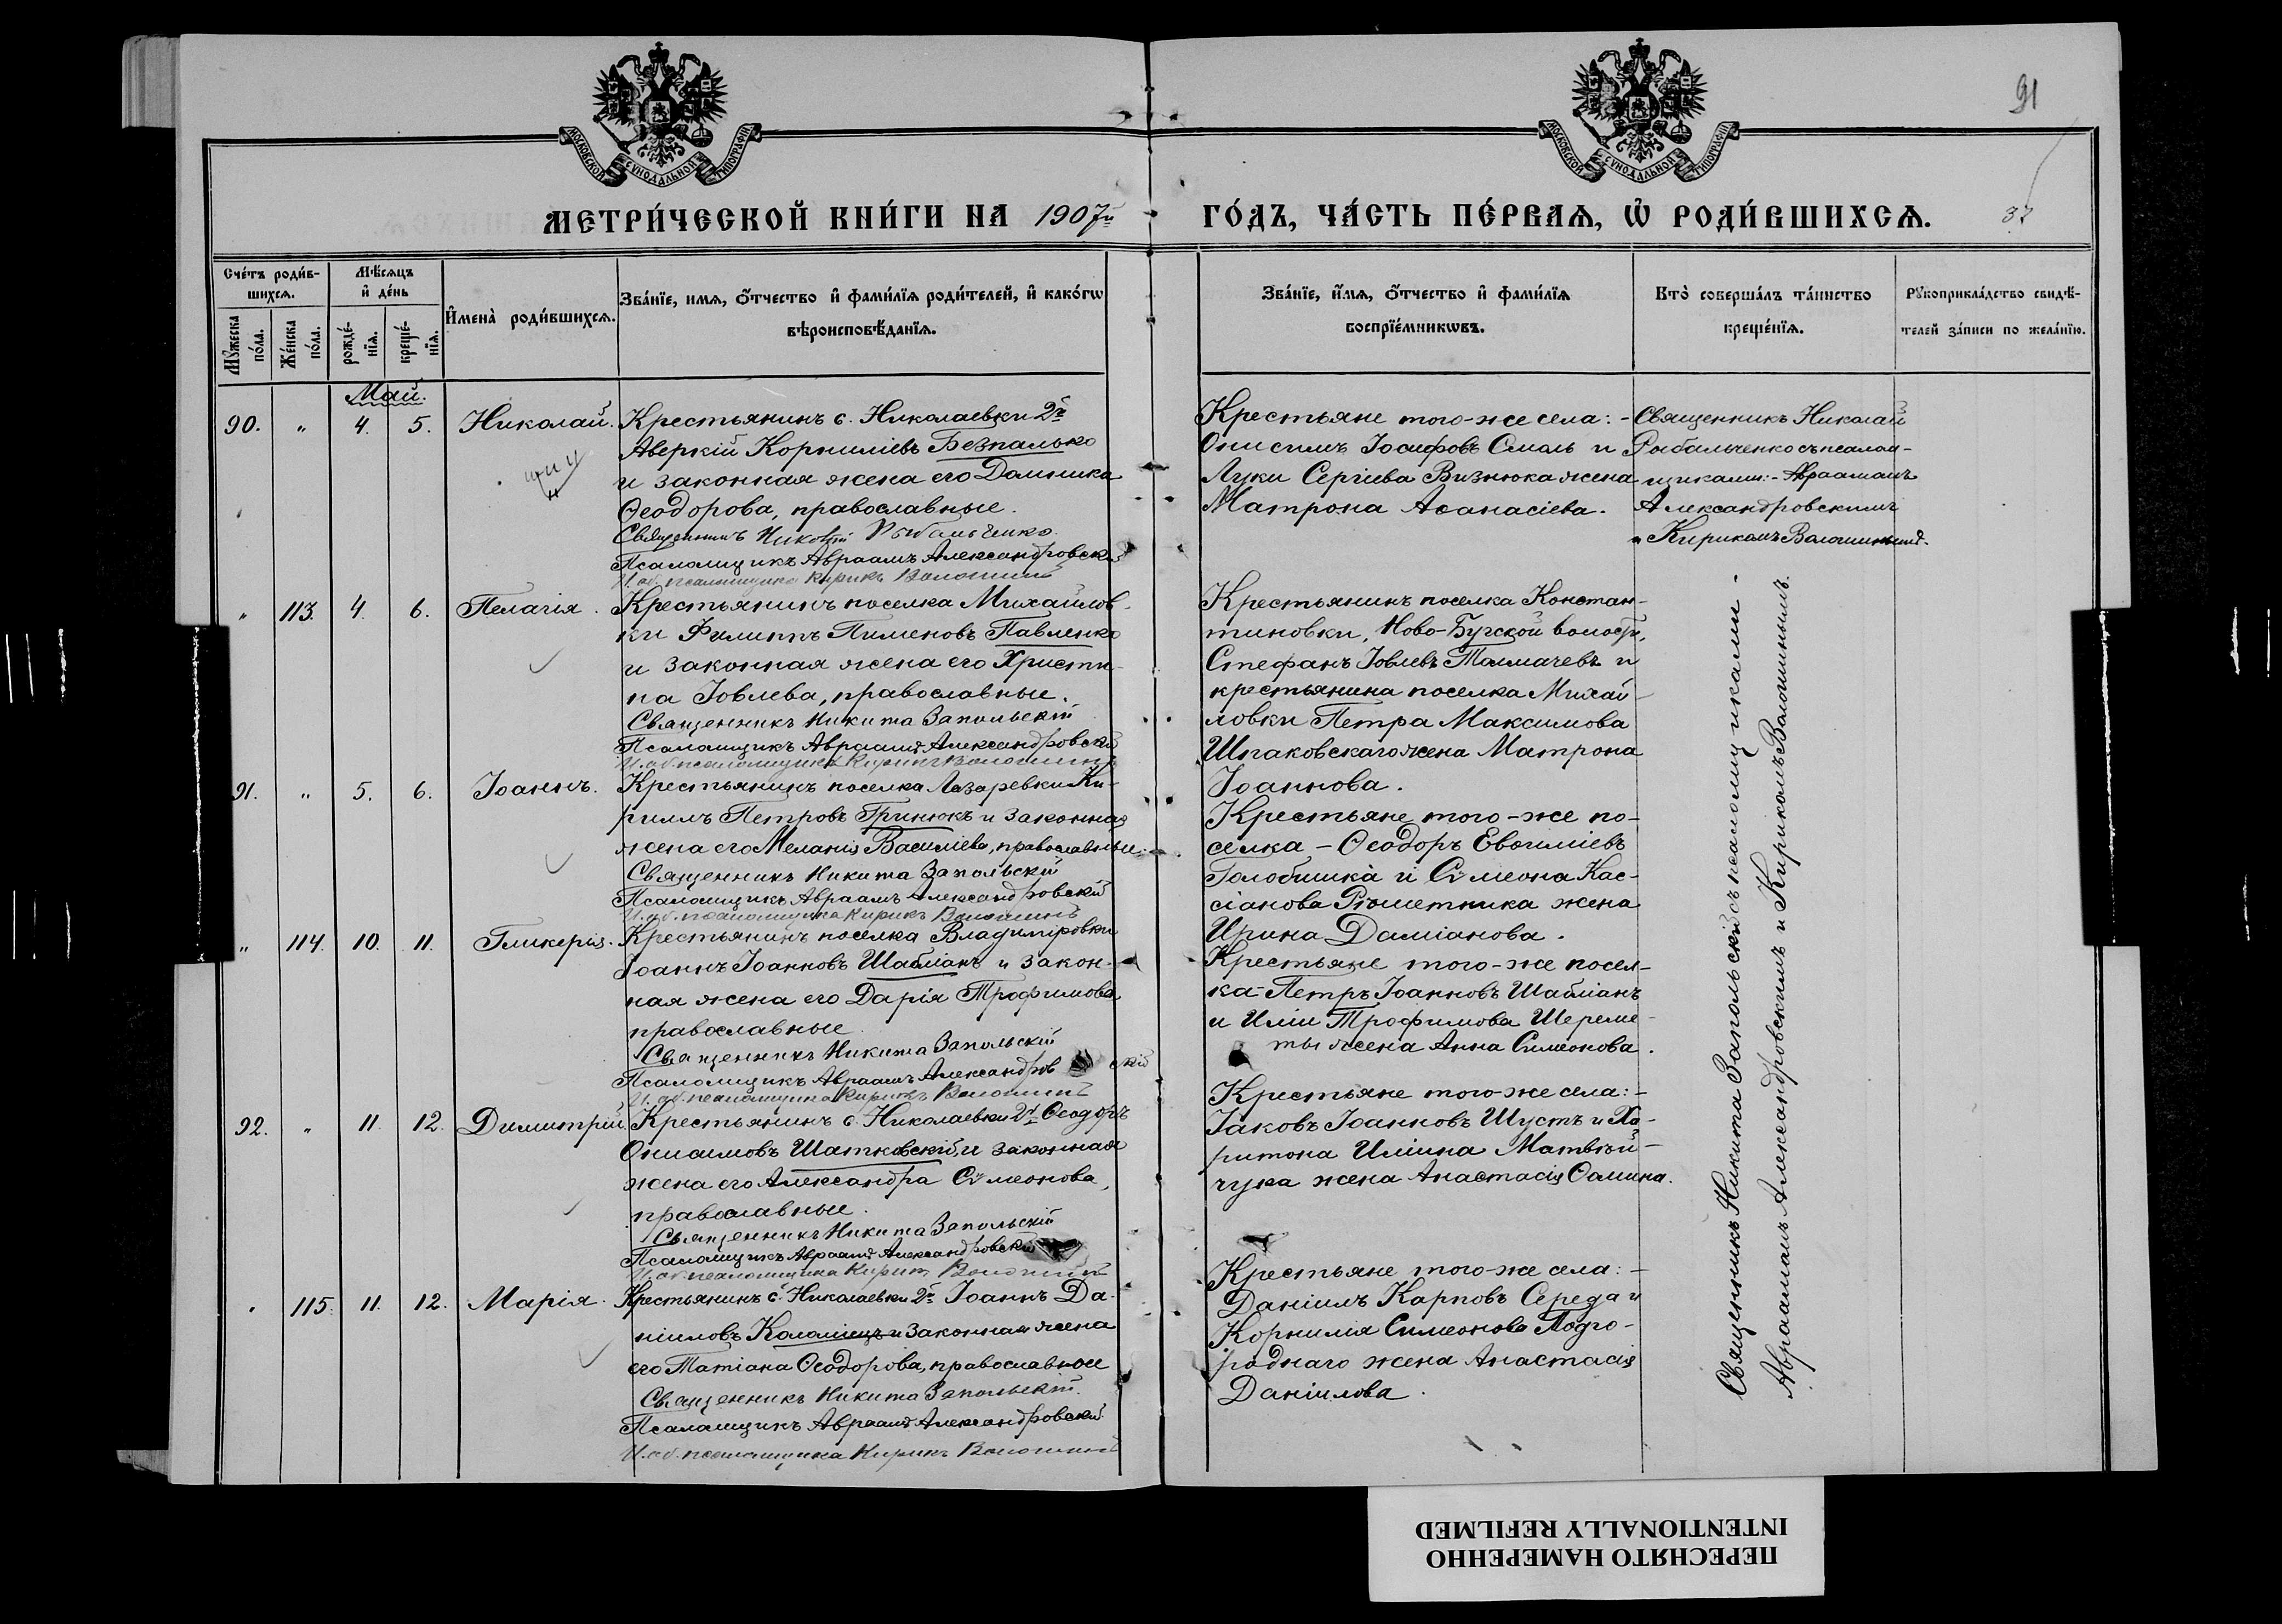 91
МОСКОВСКОЙ СУНОДАЛЬНОЙ ТИПОГРАФІИ
МОСКОВСКОЙ СУНОДАЛЬНОЙ ТИПОГРАФІИ
МЕТРИ́ЧЕСКОЙ КНИ́ГИ НА 1907й ГО́ДЪ, ЧА́СТЬ ПЕ́РВАѦ, Ѡ҆ РОДИ́ВШИХСѦ. 37
Сче́тъ роди́в-
шихсѧ.
Мꙋ́жеска по́ла.
Же́нска по́ла.
Мѣ́сѧцъ
и҆ де́нь
рожде́-
нїѧ.
креще́-
нїѧ.
И҆мена̀ роди́вшихсѧ.
Зва́нїе, имѧ, ѻ҆́тчество и҆ фами́лїѧ роди́телей, и҆ како́гѡ
вѣроисповѣ́данїѧ.
Зва́нїе, и҆́мѧ, ѻ҆́тчество и҆ фами́лїѧ
воспрїе́мникѡвъ.
Кто̀ соверша́лъ та́инство
креще́нїѧ.
Рꙋкоприкла́дство свидѣ́-
телей за́писи по жела́нїю.
Май.
90. " 4. 5. Николай.
Крестьянинъ с. Николаевки 2й
Аверкій Корниліевъ Безпалько
и законная жена его Домника
Ѳеодорова, православные.
Священникъ Николай Рыбальченко
Псаломщикъ Авраамъ Александровскій
И. об. псаломщика Кирикъ Волошинъ
Крестьяне того-же села: -
Онисимъ Іосифовъ Смоль и
Луки Сергіева Визнюка жена
Матрона Аѳанасіева.
Священникъ Николай
Рыбальченко съ псалом-
щиками: - Авраамомъ
Александровскимъ
и Кирикомъ Волошинымъ.
" 113. 4. 6. Пелагія.
Крестьянинъ поселка Михайлов-
ки Филиппъ Пименовъ Павленко
и законная жена его Христи-
на Іовлева, православные.
Священникъ Никита Запольскій
Псаломщикъ Авраамъ Александровскій
И. об. псаломщика Кирикъ Волошинъ
Крестьянинъ поселка Констан-
тиновки, Ново-Бугской волости,
Стефанъ Іовлевъ Толмачевъ и
крестьянина поселка Михай-
ловки Петра Максимова
Шпаковскаго жена Матрона
Іоаннова.
91. " 5. 6. Іоаннъ.
Крестьянинъ поселка Лазаревки Ки-
риллъ Петровъ Гринюкъ и законная
жена его Меланія Василіева, православные.
Священникъ Никита Запольскій
Псаломщикъ Авраамъ Александровскій
И. об. псаломщика Кирикъ Волошинъ
Крестьяне того-же по-
селка, - Ѳеодоръ Евѳиміевъ
и Сѵмеона Кас-
сіанова жена
Ирина Даміанова.
" 114. 10. 11. Гликерія.
Крестьянинъ поселка Владиміровки
Іоаннъ Іоанновъ Шабліанъ и закон-
ная жена его Дарія Трофимова,
православные.
Священникъ Никита Запольскій
Псаломщикъ Авраамъ Александровскій
И. об. псаломщика Кирикъ Волошинъ
Крестьяне того-же посел-
ка - Петръ Іоанновъ Шабліанъ
и Иліи Трофимова Шереме-
ты жена Анна Симеонова.
92. " 11. 12. Димитрій.
Крестьянинъ с. Николаевки 2й Ѳеодоръ
Онисимовъ Шатковскій, и законная
жена его Александра Сѵмеонова,
православные.
Священникъ Никита Запольскій
Псаломщикъ Авраамъ Александровскій
И. об. псаломщика Кирикъ Волошинъ
Крестьяне того-же села: -
Іаковъ Іоанновъ Шустъ и Ха-
ритона Иліина Матвѣй-
чука жена Анастасія Ѳомина.
" 115. 11. 12. Марія.
Крестьянинъ с. Николаевки 2й Іоаннъ Да-
ніиловъ Коломіецъ и законная жена
его Татіана Ѳеодорова, православные
Священникъ Никита Запольскій.
Псаломщикъ Авраамъ Александровскій.
И. об. псаломщика Кирикъ Волошинъ
Крестьяне того-же села: -
Даніилъ Карповъ Середа и
Корнилія Симеонова Подго-
роднаго жена Анастасія
Даніилова.
Священникъ Никита Запольскій съ псаломщиками -
Авраамомъ Александровскимъ и Кирикомъ Волошинымъ.
ПЕРЕСНЯТО НАМЕРЕННО
INTENTIONALLY REFILMED